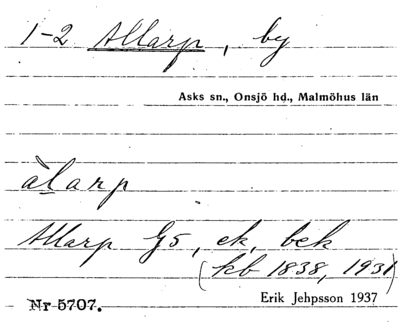 1-2 Allarp, by
Asks sn., Onsjö hd., Malmöhus län
àlarp
Allarp G5, ek, bek
(kb 1838, 1931)
Nr 5707.
Erik Jehpsson 1937